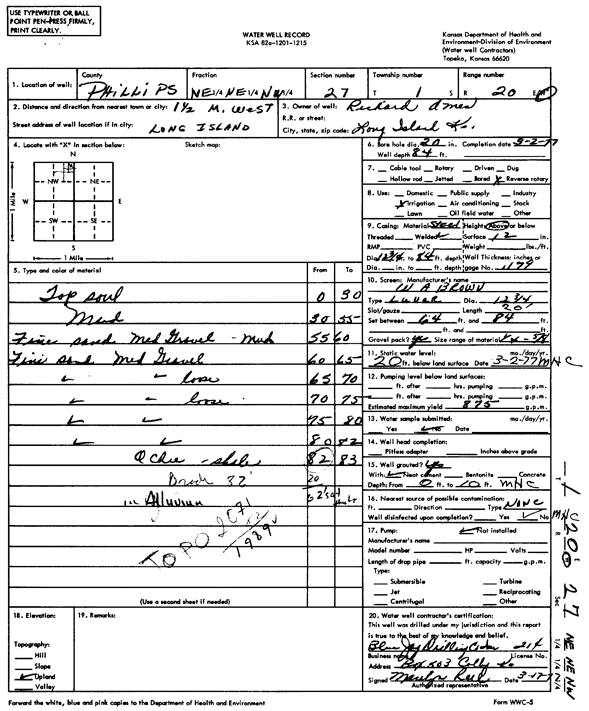 USE TYPEWRITER OR BALL
POINT PEN-PRESS FIRMLY,
PRINT CLEARLY.
WATER WELL RECORD
KSA 82a-1201-1215
Kansas Department of Health and
Environment-Division of Environment
(Water well Contractors)
Topeka, Kansas 66620
1. Location of well: County PHILLIPS Fraction NE 1/4 NE 1/4 NW 1/4 Section number 27 Township number T 1 S Range number R 20 E/W
2. Distance and direction from nearest town or city: 1 1/2 M. WEST
Street address of well location if in city: LONG ISLAND
3. Owner of well: Richard Ames
R.R. or street:
City, state, zip code: Long Island Ks.
4. Locate with "X" in section below: Sketch map:
N
NW NE
W E
SW SE
S
1 Mile
1 Mile
6. Bore hole dia. 20 in. Completion date 3-2-77
Well depth 84 ft.
7. Cable tool Rotary Driven Dug
Hollow rod Jetted Bored X Reverse rotary
8. Use: Domestic Public supply Industry
X Irrigation Air conditioning Stock
Lawn Oil field water Other
9. Casing: Material Steel Height: Above or below
Threaded Welded Surface 12 in.
RMP PVC Weight lbs./ft.
Dia. 12 3/4 in. to 84 ft. depth Wall Thickness: inches or
Dia. in. to ft. depth gage No. .1179
5. Type and color of material From To
Top soil 0 30
Mud 30 55
Fine sand Med Gravel - Mud 55 60
Fine sand Med Gravel 60 65
" " loose 65 70
" " loose 70 75
" " 75 80
" " 80 82
Ochre - shale 82 83
in Alluvium
TOPO 2071
1989
10. Screen: Manufacturer's name
W A BROWN
Type Louver Dia. 12 3/4
Slot/gauze Length 20'
Set between 64 ft. and 84 ft.
ft. and ft.
Gravel pack? yes Size range of material
11. Static water level: mo./day/yr.
20 ft. below land surface Date 3-2-77 MNC
12. Pumping level below land surfaces:
ft. after hrs. pumping g.p.m.
ft. after hrs. pumping g.p.m.
Estimated maximum yield 875 g.p.m.
13. Water sample submitted: mo./day/yr.
Yes No Date
14. Well head completion:
Pitless adapter Inches above grade
15. Well grouted? yes
With: Neat cement Bentonite Concrete
Depth: From 0 ft. to 20 ft. MNC
16. Nearest source of possible contamination:
ft. Direction Type NONE
Well disinfected upon completion? Yes No MNC
17. Pump: Not installed
Manufacturer's name
Model number HP Volts
Length of drop pipe ft. capacity g.p.m.
Type:
Submersible Turbine
Jet Reciprocating
Centrifugal Other
(Use a second sheet if needed)
18. Elevation:
19. Remarks:
Topography:
Hill
Slope
Upland
Valley
20. Water well contractor's certification:
This well was drilled under my jurisdiction and this report
is true to the best of my knowledge and belief.
Blue Jay Drilling 214
Business name License No.
Address Box 503 Colby Ks
Signed Date 3-17-77
Authorized representative
Forward the white, blue and pink copies to the Department of Health and Environment
Form WWC-5
T 1 R 20 W Sec 27 NE 1/4 NE 1/4 NW 1/4